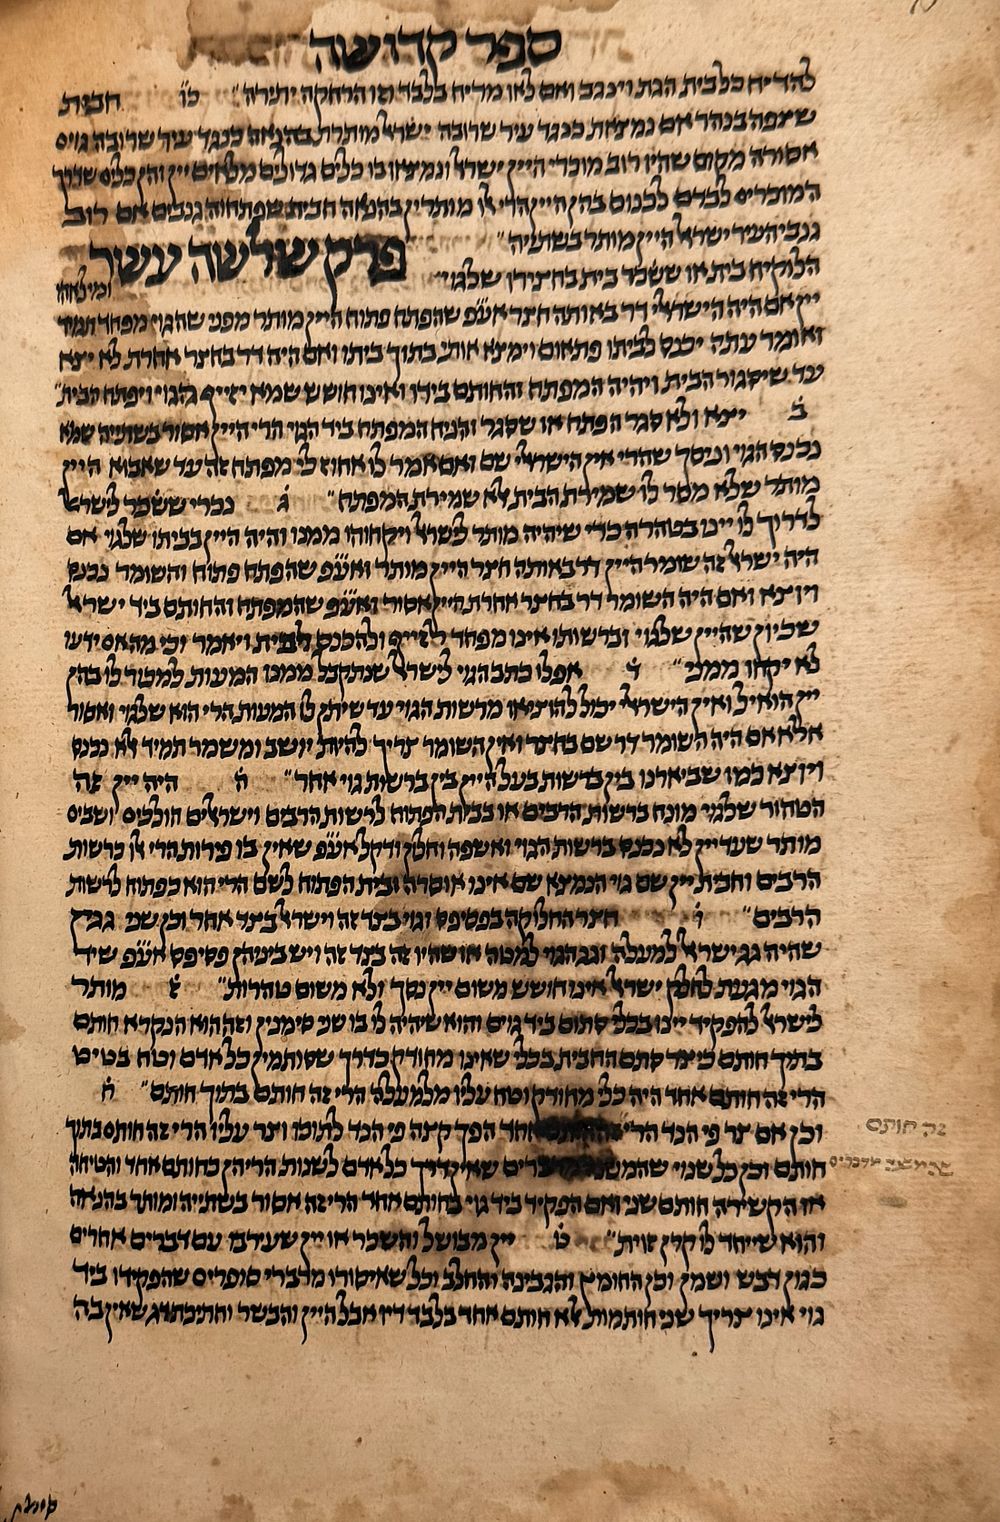 ספר קדושה
להדיח כל בית הגת וינגב ואם לאו מדיח בלבד וזו הרחקה יתירה כו חבית
שצפה בנהר אם נמצאת כנגד עיר שרובה ישראל מותרת בהנאה כנגד עיר שרובה גוים
אסורה מקום שהיו רוב מוכרי היין ישראל ונמצאו בו כלים גדולים מלאים יין והן כלים שדרך
המוכרים לבדם לכנוס בהן היין הרי אלו מותרין בהנאה חבית שפתחוה גנבים אם רוב
גנבי העיר ישראל היין מותר בשתיה
פרק שלשה עשר
הלוקח בית או ששכר בית בחצירו של גוי ומילאהו
יין אם היה הישראלי דר באותה חצר אע״פ שהפתח פתוח היין מותר מפני שהגוי מפחד תמיד
ואומר עתה יכנס לביתו פתאום וימצא אותי בתוך ביתו ואם היה דר בחצר אחרת לא יצא
עד שיסגור הבית ויהיה המפתח והחותם בידו ואינו חושש שמא יזייף הגוי ויפתח הבית
ב יצא ולא סגר הפתח או שסגר והניח המפתח ביד הגוי הרי היין אסור בשתיה שמא
נכנס הגוי וניסך שהרי אין הישראלי שם ואם אמר לו אחוז לי מפתח זה עד שאבוא היין
מותר שלא מסר לו שמירת הבית אלא שמירת המפתח ג נכרי ששכר לישראל
לדרוך לו יינו בטהרה כדי שיהיה מותר לישראל ויקחוהו ממנו והיה היין בביתו של גוי אם
היה ישראל זה שומר היין דר באותה חצר היין מותר ואע״פ שהפתח פתוח והשומר נכנס
ויוצא ואם היה השומר דר בחצר אחרת היין אסור ואע״פ שהמפתח והחותם ביד ישראל
שכיון שהיין של גוי וברשותו אינו מפחד לזייף ולהכנס לבית ויאמר יהי מה אם ידעו
לא יקחו ממני ד אפלו כתב הגוי לישראל שנתקבל ממנו המעות למכור לו בהן
יין הואיל ואין הישראלי יכול להוציאו מרשות הגוי עד שיתן לו המעות הרי הוא של גוי ואסור
אלא אם היה השומר דר שם בחצר ואין השומר צריך להיות יושב ומשמר תמיד אלא נכנס
ויוצא כמו שביארנו בין ברשות בעל היין בין ברשות גוי אחר ה היה יין זה
הטהור של גוי מונח ברשות הרבים או בבית הפתוח לרשות הרבים וישראלים הולכים ושבים
מותר שעדיין לא נכנס ברשות הגוי ואשפה וחלון ודקל אע״פ שאין בו פירות הרי אלו כרשות
הרבים וחבית יין שם גוי הנמצא שם אינו אוסרה ובית הפתוח לשם הרי הוא כפתוח לרשות
הרבים ו חצר החלוקה בפסיפס וגוי בצד זה וישראל בצד אחר וכן שני גגין
שהיה גג ישראל למעלה וגג הגוי למטה או שהיו זה בצד זה ויש ביניהן פסיפס אע״פ שיד
הגוי מגעת לחלק ישראל אינו חושש משום יין נסך ולא משום טהרות ז מותר
לישראל להפקיד יינו בכלי סתום ביד גוים והוא שיהיה לו בו שני סימנין וזהו הנקרא חותם
בתוך חותם כיצד סתם החבית בכלי שאינו מהודק כדרך שסותמין כל אדם וטח בטיט
הרי זה חותם אחד היה כלי מהודק וטח עליו מלמעלה הרי זה חותם בתוך חותם ח
וכן אם צר פי הנד הרי זה חותם אחד הפך קצה פי הנד לתוכו וצר עליו הרי זה חותם בתוך
חותם וכן כל שנוי שהמשנה מדברים שאין דרך כל אדם לשנות הרי הן כחותם אחד והטיחה
או הקשירה חותם שני ואם הפקיד ביד גוי בחותם אחד הרי זה אסור בשתייה ומותר בהנאה
והוא שייחד לו קרן זוית ט יין מבושל והשכר או יין שעירבו עם דברים אחרים
כגון דבש ושמן וכן החומץ והגבינה והחלב וכל שאיסורו מדברי סופרים שהפקידו ביד
גוי אינו צריך שני חותמות אלא חותם אחד בלבד דיו אבל היין והבשר וחתיכת דג שאין בה
זה חותם
סימן